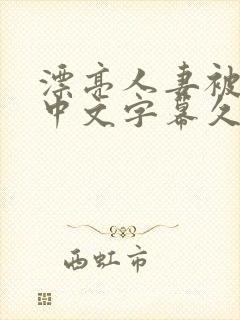 漂亮人妻被
中文字幕久
西虹市